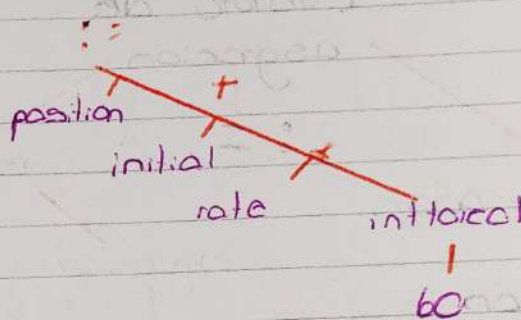 :=
+
position
*
initial
rate
inttoreal
60